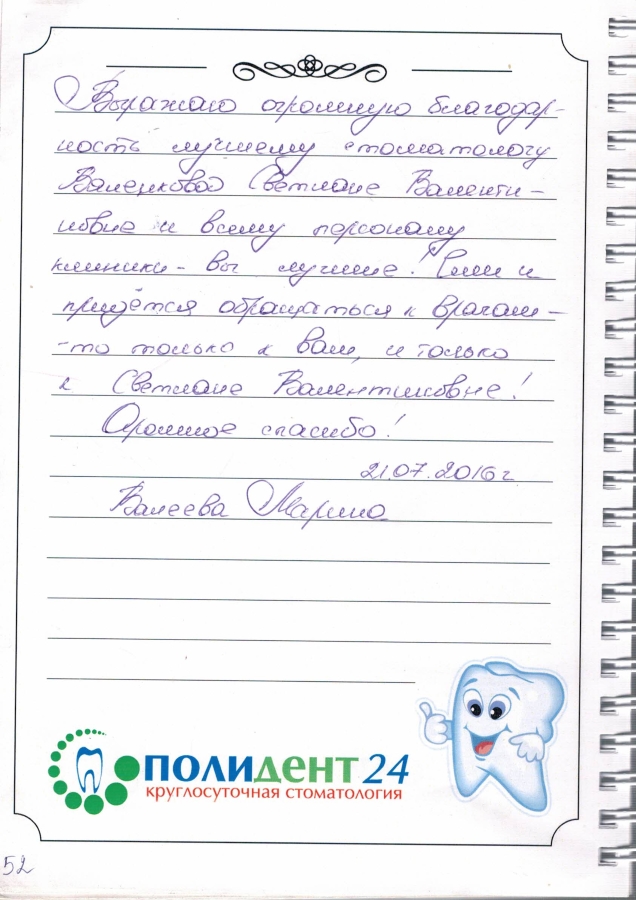 Выражаю огромную благодар-
ность лучшему стоматологу
Валенковой Светлане Валенти-
новне и всему персоналу
клиники - вы лучшие! Если и
придётся обращаться к врачам -
-то только к вам, и только
к Светлане Валентиновне!
Огромное спасибо!
21.07.2016 г
Валеева Марина
ПОЛИДЕНТ 24
круглосуточная стоматология
52